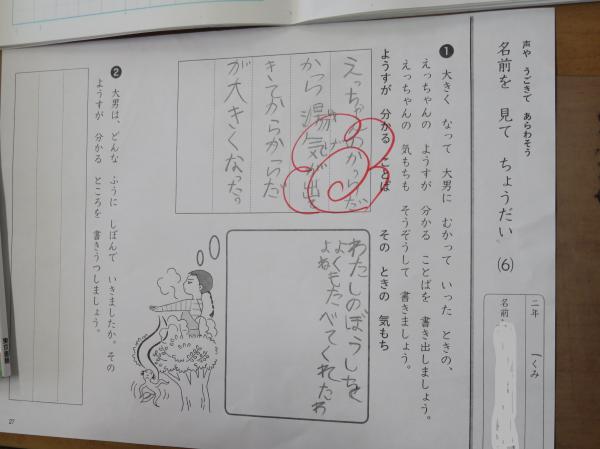 声や うごきで あらわそう
名前を 見て ちょうだい (6)
二年 一くみ
名前
❶ 大きく なって 大男に むかって いった ときの、
えっちゃんの ようすが 分かる ことばを 書き出しましょう。
えっちゃんの 気もちも そうぞうして 書きましょう。
ようすが 分かる ことば
その ときの 気もち
えっちゃんのからだ
から湯気が出て
きてからからだ
が大きくなった。
わたしのぼうしを
よくもたべてくれたわ
よね
❷ 大男は、どんな ふうに しぼんで いきましたか。その
ようすが 分かる ところを 書きうつしましょう。
27
東京書籍